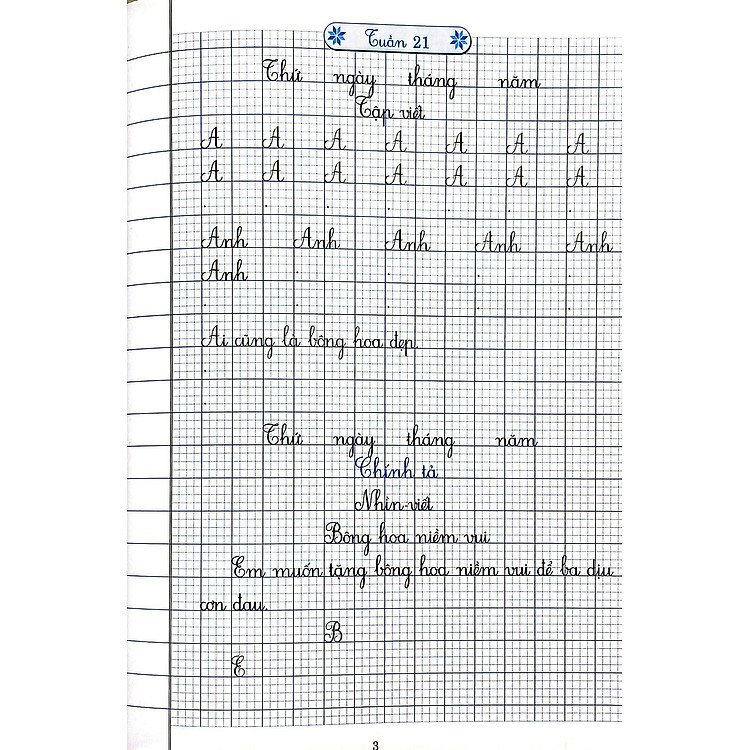 Tuần 21
Thứ ngày tháng năm
Tập viết
A A A A A A A
A A A A A A A
Anh Anh Anh Anh Anh
Anh
Ai cũng là bông hoa đẹp.
Thứ ngày tháng năm
Chính tả
Nhìn-viết
Bông hoa niềm vui
Em muốn tặng bông hoa niềm vui để ba dịu
cơn đau.
B
E
3